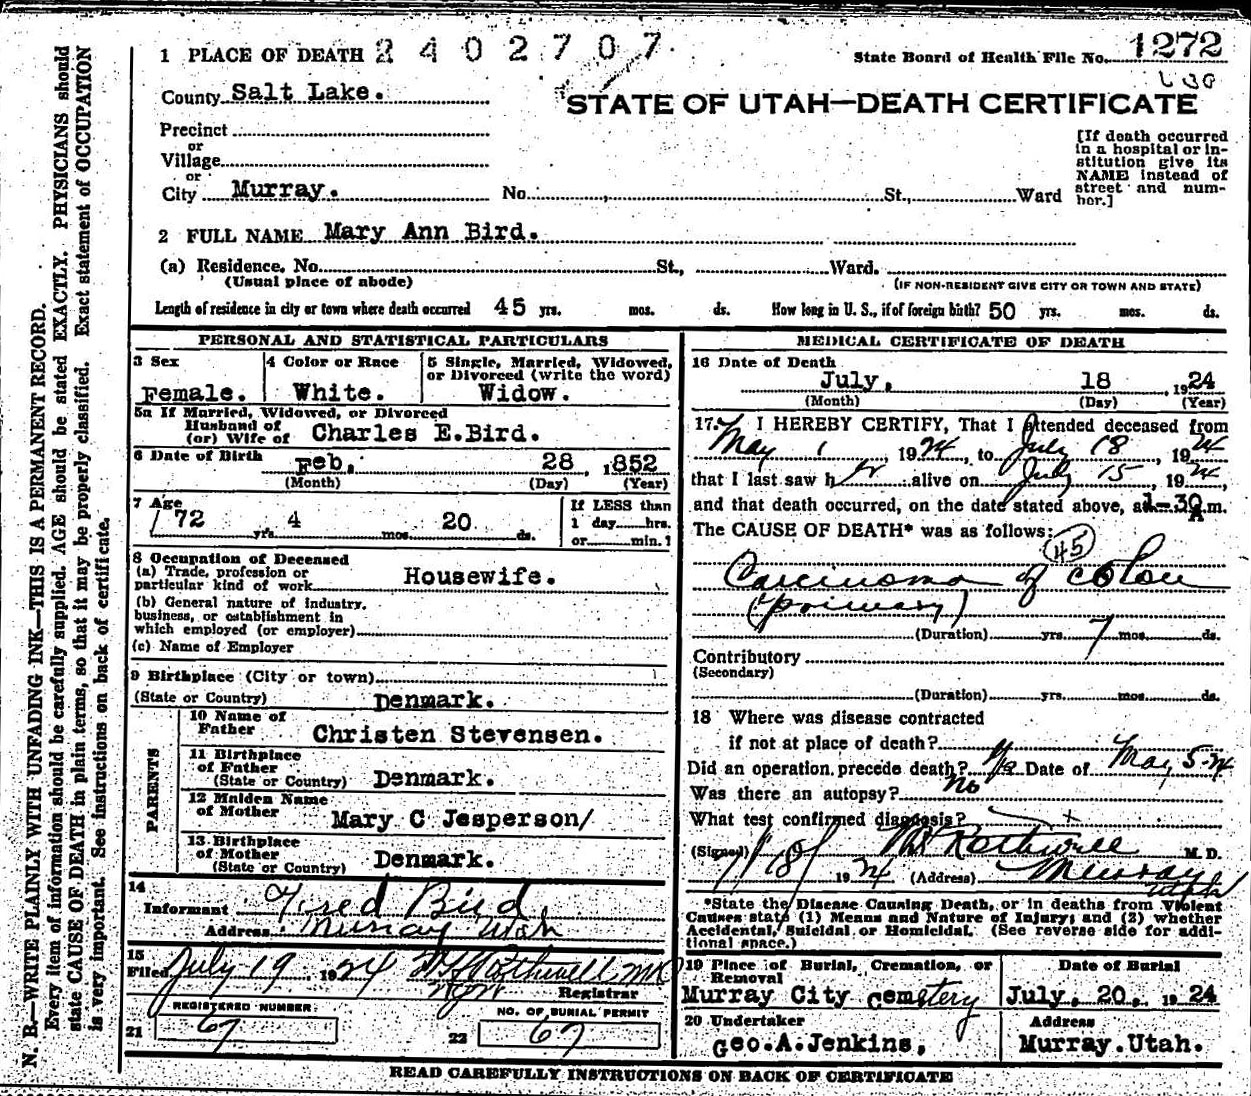 1 PLACE OF DEATH 2402707
State Board of Health File No. 1272
County Salt Lake.
STATE OF UTAH—DEATH CERTIFICATE
Precinct
or
Village
or
City Murray. No. , St., Ward
[If death occurred
in a hospital or in-
stitution give its
NAME instead of
street and num-
ber.]
2 FULL NAME Mary Ann Bird.
(a) Residence. No. St., Ward.
(Usual place of abode) (IF NON-RESIDENT GIVE CITY OR TOWN AND STATE)
Length of residence in city or town where death occurred 45 yrs. mos. ds. How long in U. S., if of foreign birth? 50 yrs. mos. ds.
PERSONAL AND STATISTICAL PARTICULARS
3 Sex
Female.
4 Color or Race
White.
5 Single, Married, Widowed,
or Divorced (write the word)
Widow.
5a If Married, Widowed, or Divorced
Husband of
(or) Wife of Charles E.Bird.
6 Date of Birth Feb. 28 , 1852
(Month) (Day) (Year)
7 Age
72 yrs. 4 mos. 20 ds.
If LESS than
1 day hrs.
or min.?
8 Occupation of Deceased
(a) Trade, profession or
particular kind of work Housewife.
(b) General nature of industry,
business, or establishment in
which employed (or employer)
(c) Name of Employer
9 Birthplace (City or town)
(State or Country) Denmark.
PARENTS
10 Name of
Father Christen Stevensen.
11 Birthplace
of Father
(State or Country) Denmark.
12 Maiden Name
of Mother Mary C Jesperson/
13 Birthplace
of Mother
(State or Country) Denmark.
14
Informant Fred Bird
Address Murray Utah
15
Filed July 19 1924 Rothwell MD
Registrar
REGISTERED NUMBER
21 67
NO. OF BURIAL PERMIT
22 67
MEDICAL CERTIFICATE OF DEATH
16 Date of Death
July, 18 , 1924
(Month) (Day) (Year)
17. I HEREBY CERTIFY, That I attended deceased from
May 1 , 1924, to July 18 , 1924
that I last saw her alive on July 15 , 1924,
and that death occurred, on the date stated above, at 1-30 A m.
The CAUSE OF DEATH* was as follows:
45
Carcinoma of colon
(primary)
(Duration) yrs. 7 mos. ds.
Contributory
(Secondary)
(Duration) yrs. mos. ds.
18 Where was disease contracted
if not at place of death?
Did an operation precede death? Date of May 5-24
Was there an autopsy? No
What test confirmed diagnosis?
(Signed) Rothwell M. D.
7/18/ 1924 (Address) Murray
Utah
*State the Disease Causing Death, or in deaths from Violent
Causes state (1) Means and Nature of Injury; and (2) whether
Accidental, Suicidal or Homicidal. (See reverse side for addi-
tional space.)
19 Place of Burial, Cremation, or
Removal
Murray City Cemetery
Date of Burial
July, 20, 1924
20 Undertaker
Geo.A.Jenkins,
Address
Murray.Utah.
READ CAREFULLY INSTRUCTIONS ON BACK OF CERTIFICATE
N. B.—WRITE PLAINLY WITH UNFADING INK—THIS IS A PERMANENT RECORD.
Every item of information should be carefully supplied. AGE should be stated EXACTLY. PHYSICIANS should
state CAUSE OF DEATH in plain terms, so that it may be properly classified. Exact statement of OCCUPATION
is very important. See instructions on back of certificate.